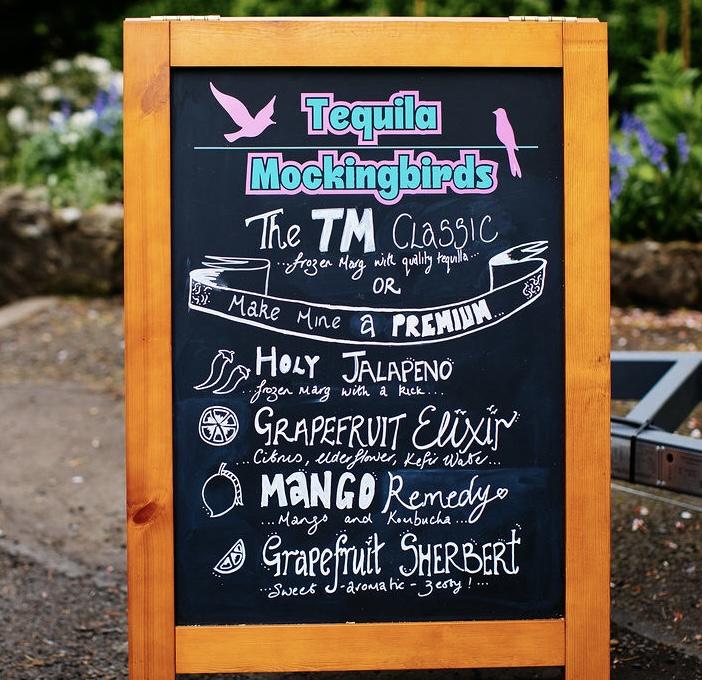 Tequila
Mockingbirds
The TM Classic
...frozen Marg with quality tequilla...
OR
Make Mine a PREMIUM...
HOLY JALAPENO
...frozen marg with a kick...
GRAPEFRUIT Elixir
...Citrus, elderflower, Kefir Water...
MANGO Remedy
...Mango and Koubucha...
Grapefruit SHERBERT
...Sweet - aromatic - zesty!...